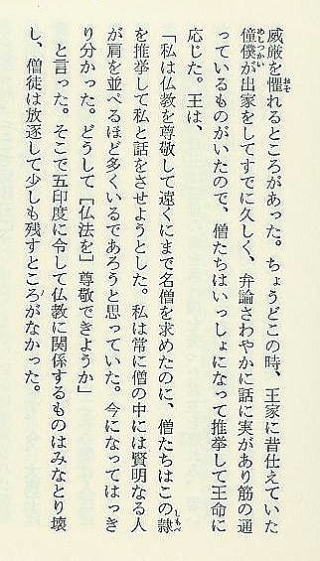 威厳を懼れるところがあった。ちょうどこの時、王家に昔仕えていた
僮僕が出家をしてすでに久しく、弁論さわやかに話に実があり筋の通
っているものがいたので、僧たちはいっしょになって推挙して王命に
応じた。王は、
「私は仏教を尊敬して遠くにまで名僧を求めたのに、僧たちはこの隷
を推挙して私と話をさせようとした。私は常に僧の中には賢明なる人
が肩を並べるほど多くいるであろうと思っていた。今になってはっき
り分かった。どうして［仏法を］尊敬できようか」
と言った。そこで五印度に令して仏教に関係するものはみなとり壊
し、僧徒は放逐して少しも残すところがなかった。